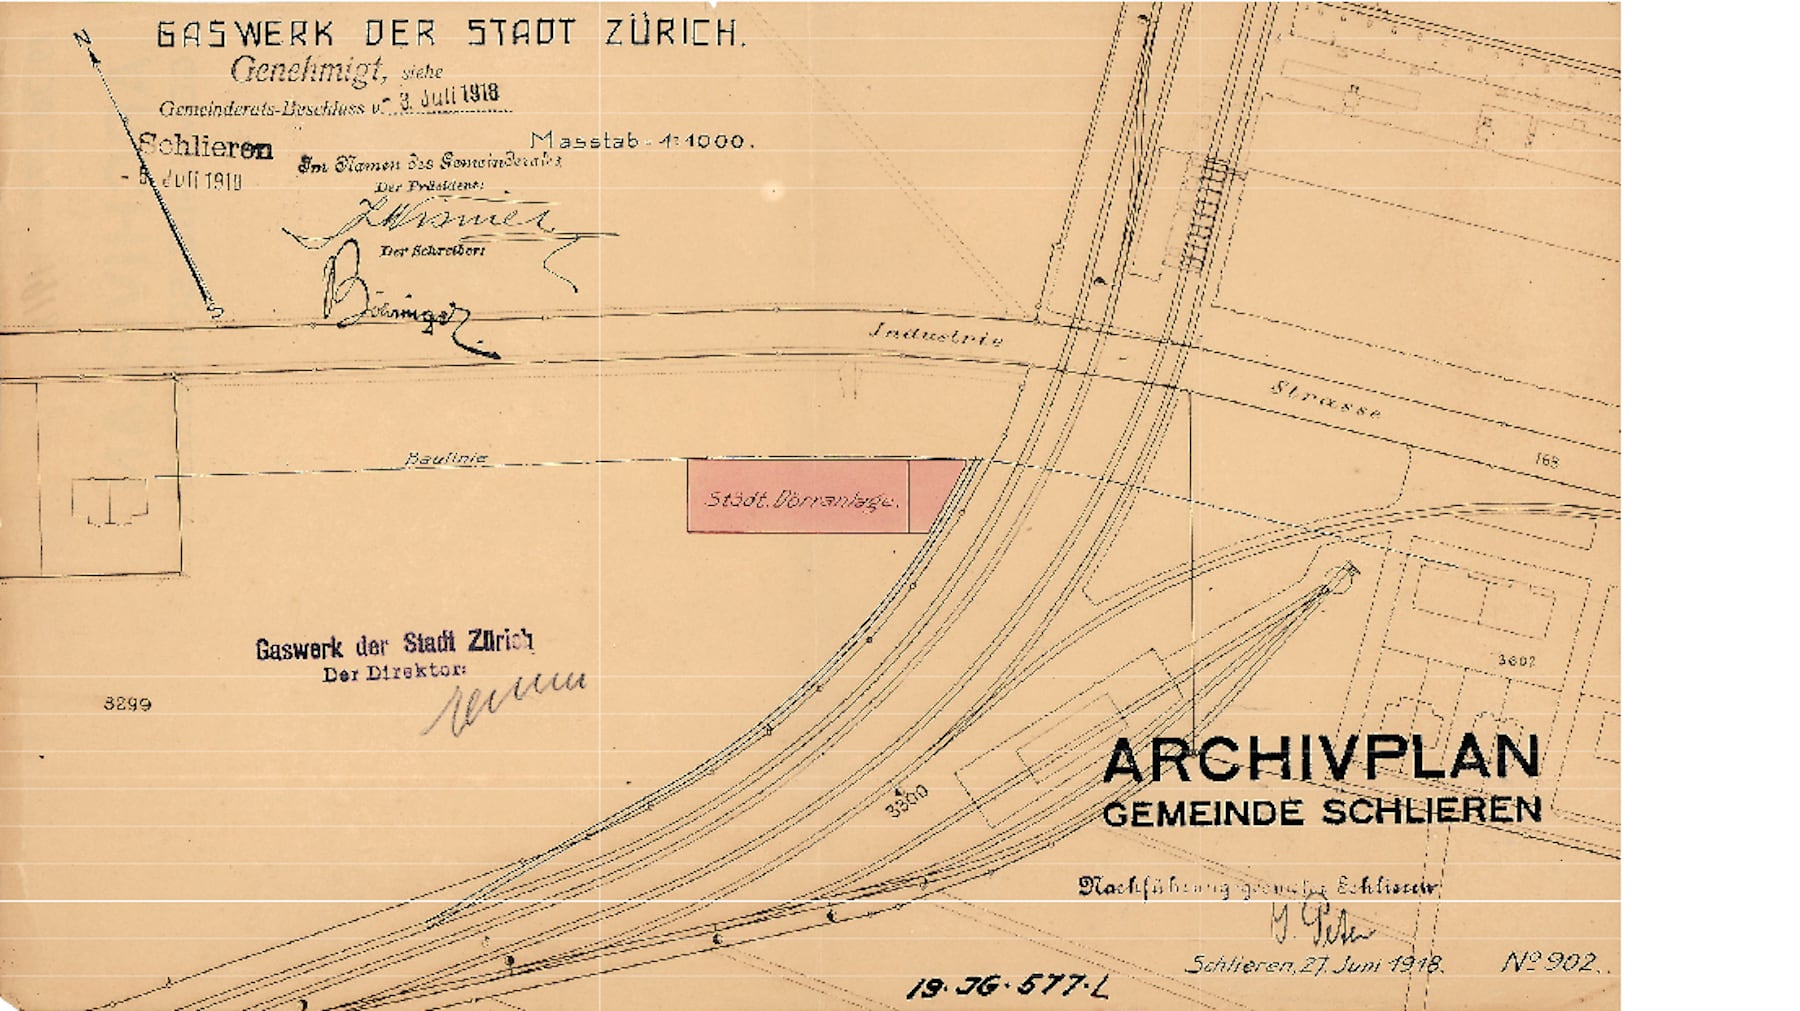 N
GASWERK DER STADT ZÜRICH.
Genehmigt, siehe
Gemeinderats-Beschluss v. - 3. Juli 1918
Schlieren
- 5. Juli 1918
Masstab - 1:1000.
Im Namen des Gemeinderates
Der Präsident:
Der Schreiber:
S
Industrie
Strasse
168
Baulinie
Städt. Dörranlage.
Gaswerk der Stadt Zürich
Der Direktor:
3299
3602
3300
ARCHIVPLAN
GEMEINDE SCHLIEREN
Nachführungsgeometer Schlieren
Schlieren, 27. Juni 1918.
No 902.
19·JG·577·L